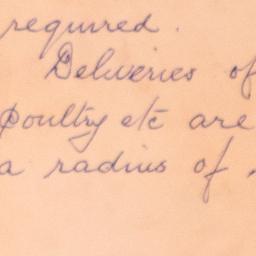 required.
Deliveries of
poultry etc are
a radius of